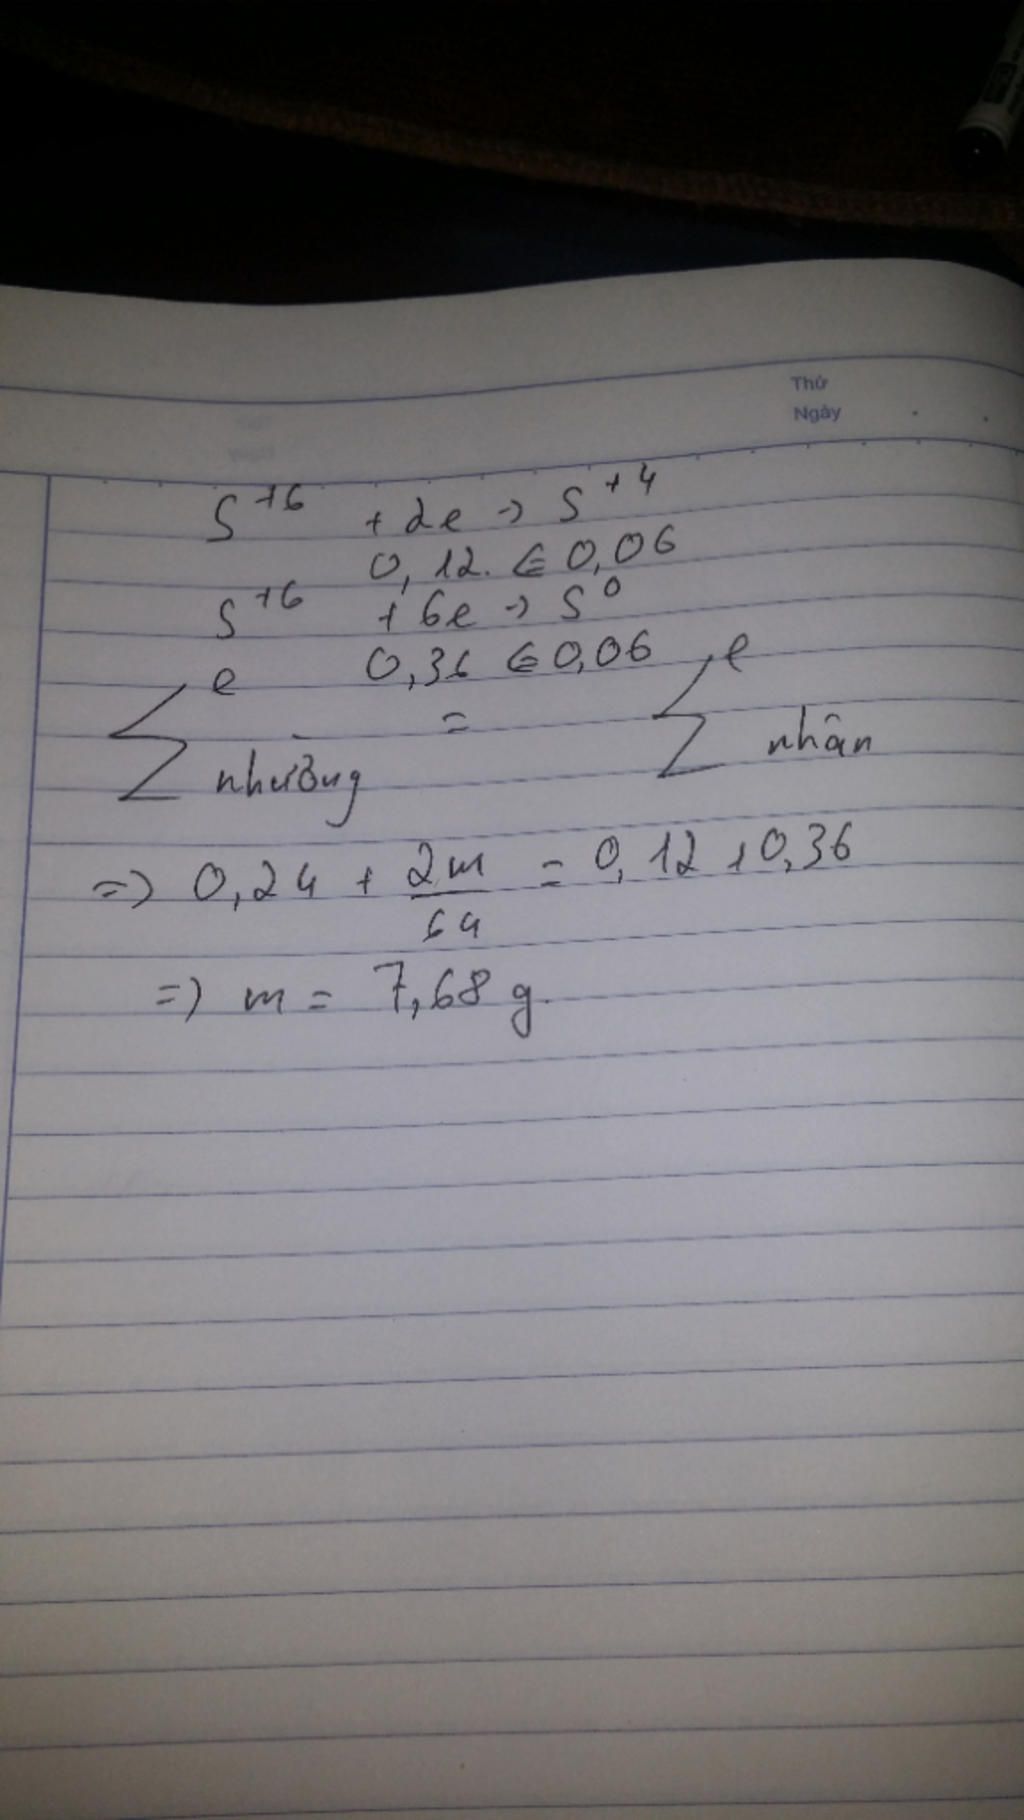 Thứ
Ngày
S⁺⁶ + 2e → S⁺⁴
0,12. ⇐ 0,06
S⁺⁶ + 6e → S⁰
0,36 ⇐ 0,06
∑ e nhường = ∑ e nhận
=> 0,24 + 2m/64 = 0,12 + 0,36
=> m = 7,68 g.